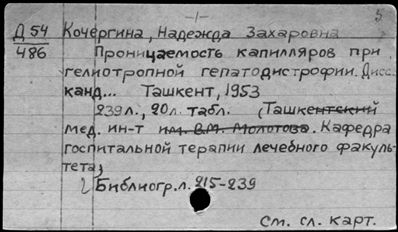 -1- 5
Д 54 Кочергина, Надежда Захаровна
486 Проницаемость капилляров при
гелиотропной гепатодистрофии. Дисс.
канд... Ташкент, 1953
239 л., 20 л. табл. (Ташкентский
мед. ин-т им. В.М. Молотова. Кафедра
госпитальной терапии лечебного факуль-
тета)
Библиогр. л. 215-239
См. сл. карт.